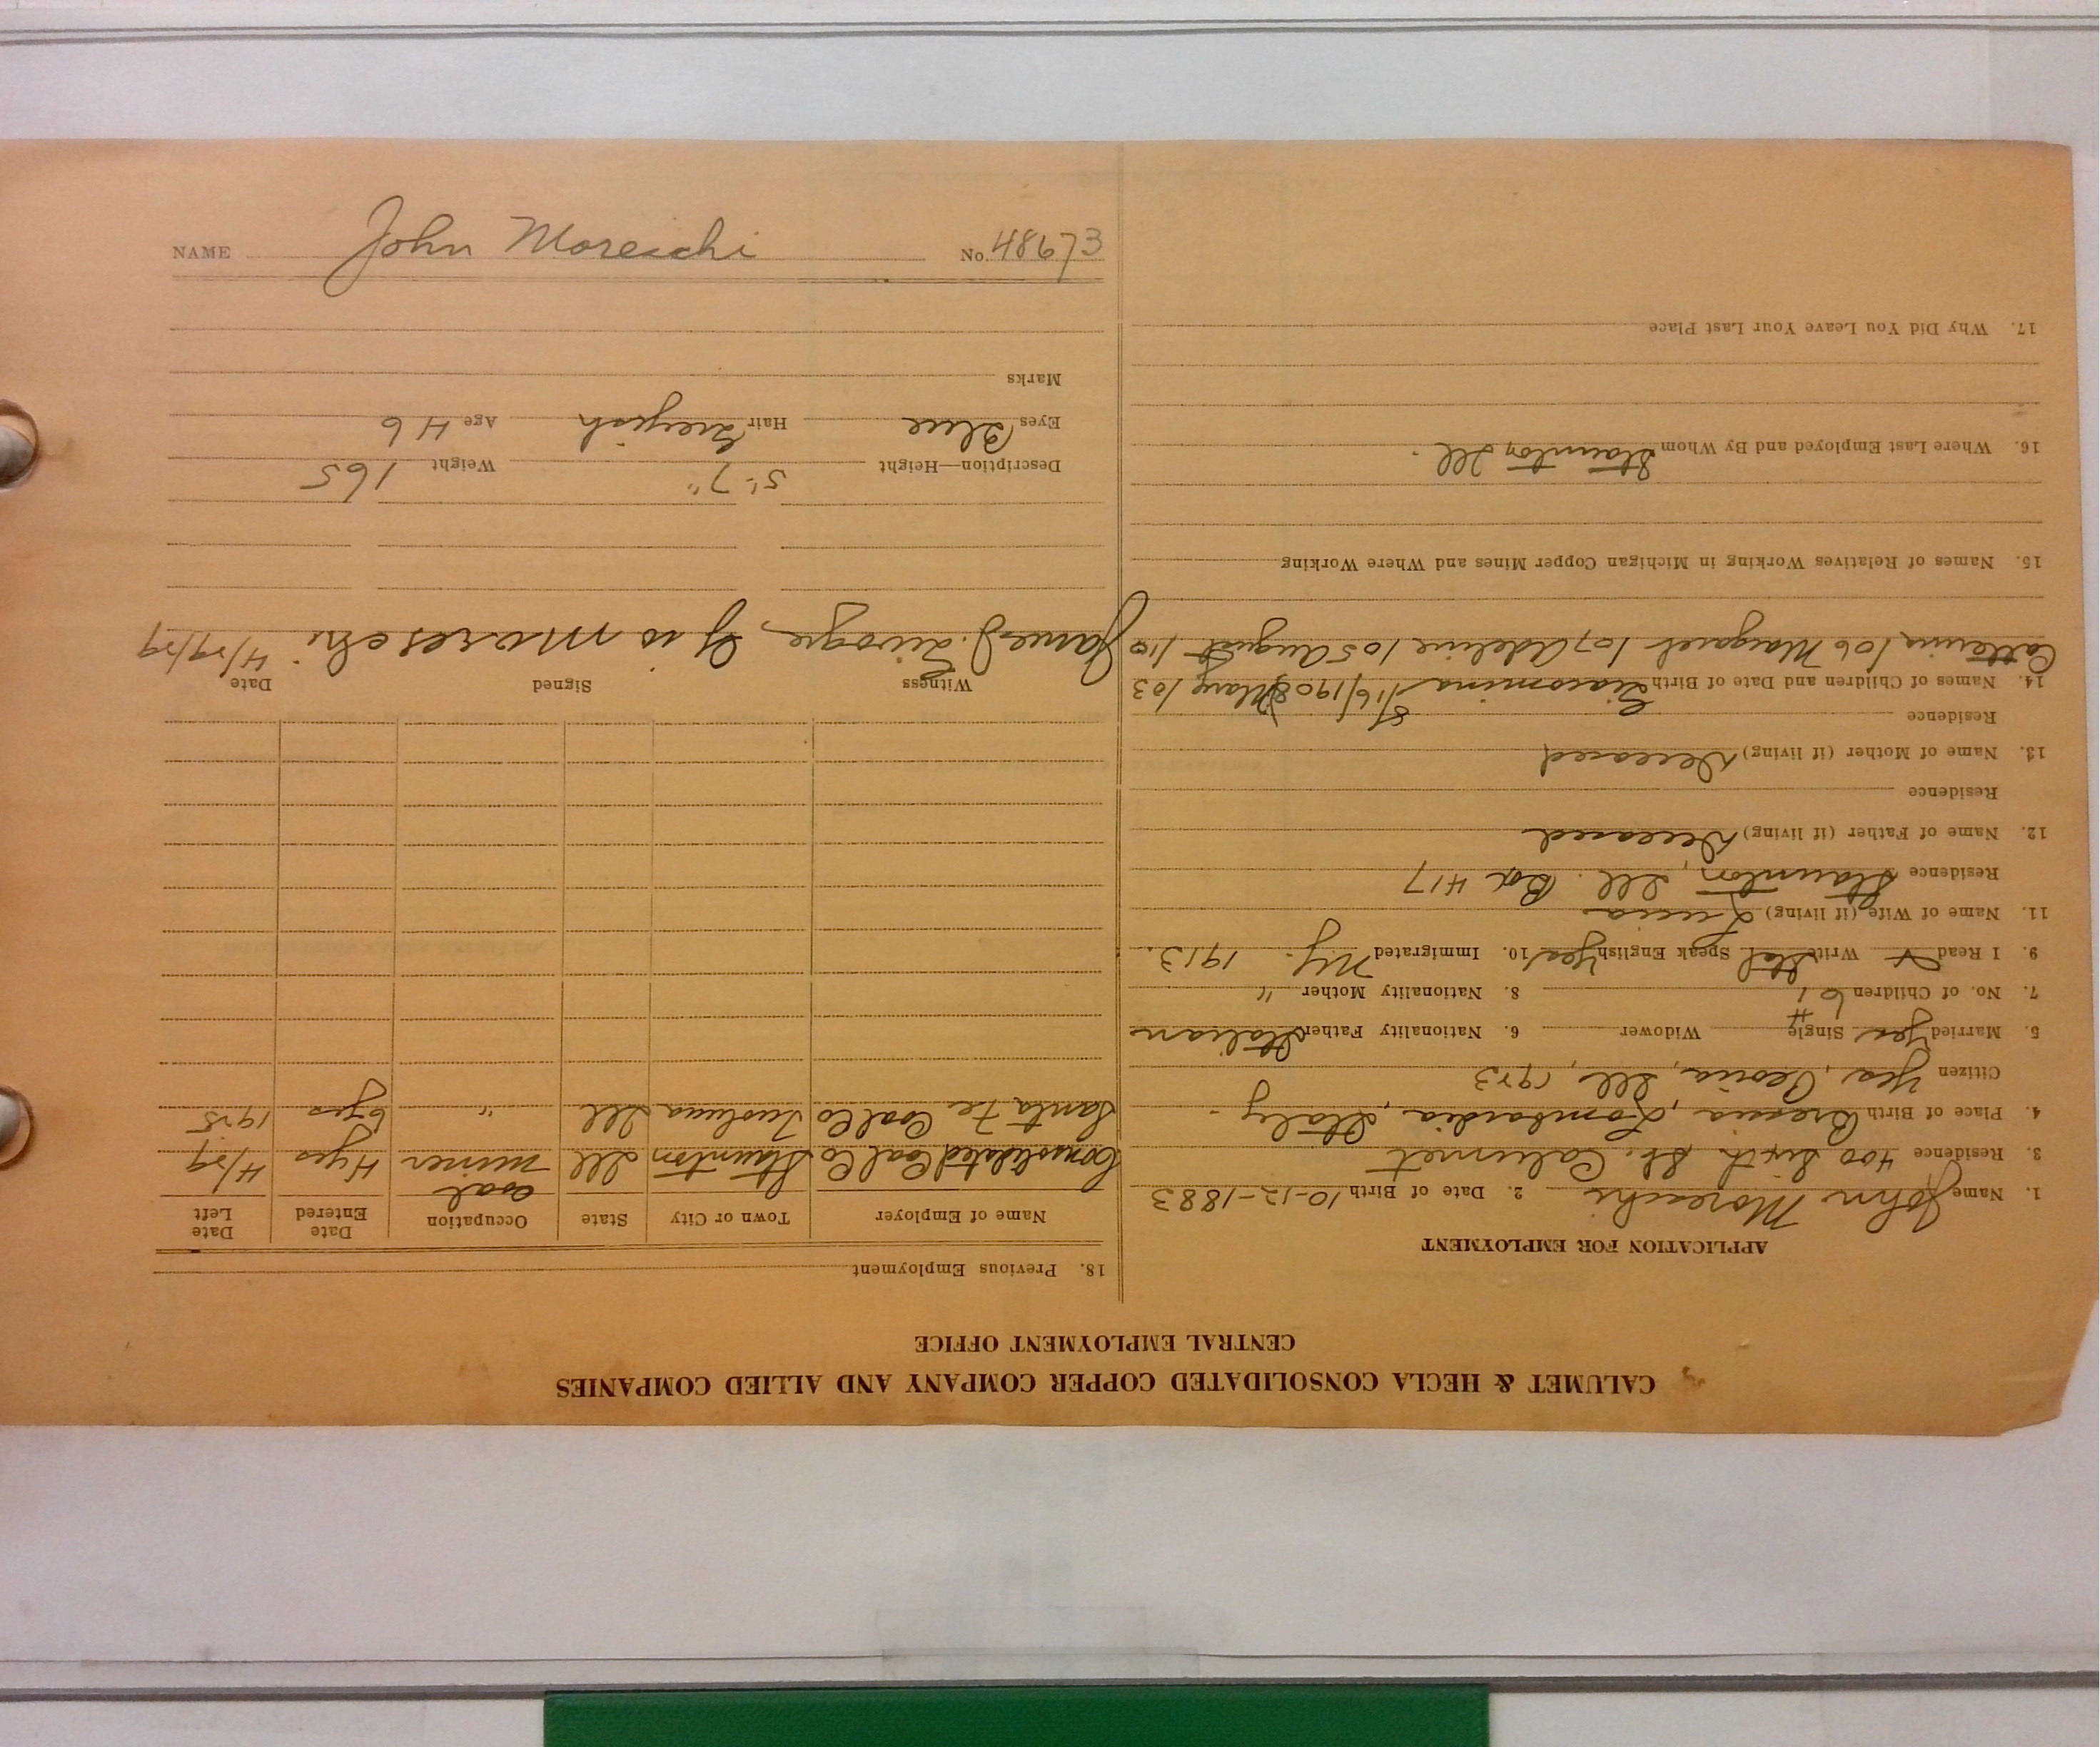 CALUMET & HECLA CONSOLIDATED COPPER COMPANY AND ALLIED COMPANIES
CENTRAL EMPLOYMENT OFFICE
APPLICATION FOR EMPLOYMENT
1. Name John Moreschi 2. Date of Birth 10-12-1883
3. Residence 400 Sixth St. Calumet
4. Place of Birth Brescia, Lombardia, Italy
Citizen Yes, Peoria, Ill, 1923
5. Married Yes Single Widower 6. Nationality Father Italian
7. No. of Children 6 8. Nationality Mother "
9. I Read Write Ital Speak English Yes 10. Immigrated N.Y. 1913.
11. Name of Wife (if living) Lucia
Residence Staunton, Ill. Box 417
12. Name of Father (if living) Deceased
Residence
13. Name of Mother (if living) Deceased
Residence
14. Names of Children and Date of Birth Giacomina 8/16/1908 Mary /03
Catterina /06 Margaret /07 Adeline /05 August /10
15. Names of Relatives Working in Michigan Copper Mines and Where Working
16. Where Last Employed and By Whom Staunton, Ill.
17. Why Did You Leave Your Last Place
18. Previous Employment
Name of Employer Town or City State Occupation Date Entered Date Left
Consolidated Coal Co Staunton Ill coal miner 4 yrs 4/29
Santa Fe Coal Co Ill " 6 yrs 1925
Witness Signed Date
James J. Moreschi 4/29/29
Description—Height 5'-7" Weight 165
Eyes Blue Hair Greyish Age 46
Marks
NAME John Moreschi No. 48673